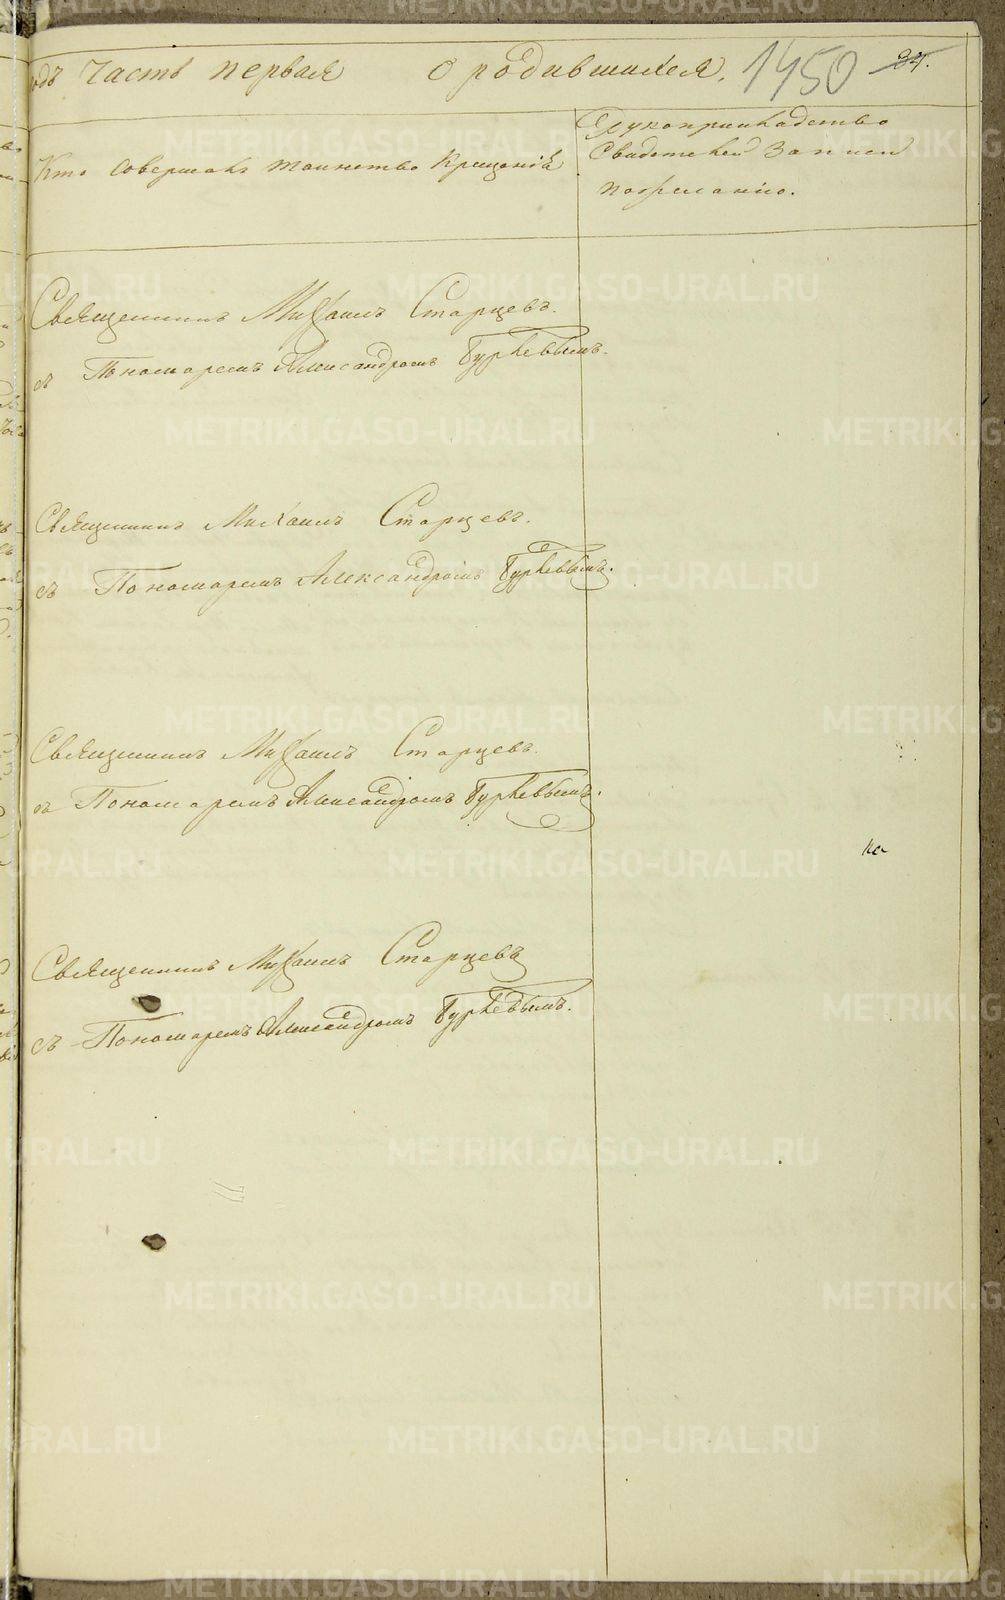 одъ часть первая о родившихся. 1450 24.
Кто совершалъ таинство крещенія
Рукоприкладство
Свидетелей записи
по желанію.
Священникъ Михаилъ Старцевъ.
съ Пономаремъ Александромъ Гуркевымъ.
Священникъ Михаилъ Старцевъ.
съ Пономаремъ Александромъ Гуркевымъ.
Священникъ Михаилъ Старцевъ.
съ Пономаремъ Александромъ Гуркевымъ.
Священникъ Михаилъ Старцевъ
съ Пономаремъ Александромъ Гуркевымъ.
METRIKI.GASO-URAL.RU